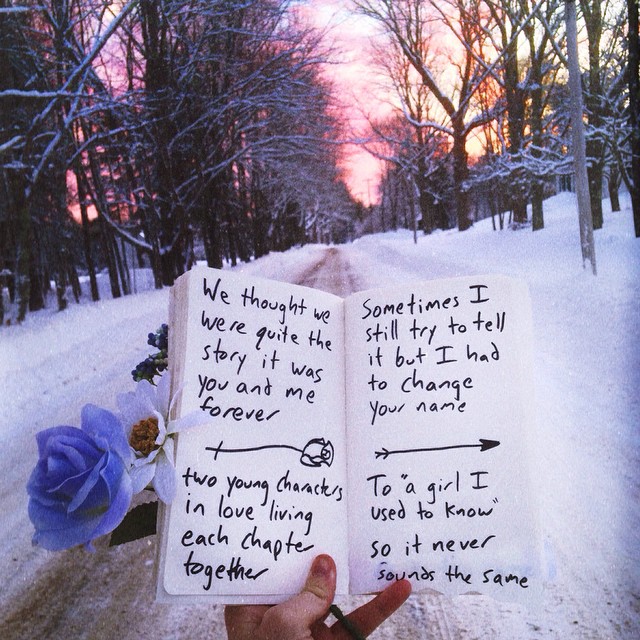 We thought we
were quite the
story it was
you and me
forever
two young characters
in love living
each chapter
together
Sometimes I
still try to tell
it but I had
to change
your name
To "a girl I
used to know"
so it never
sounds the same